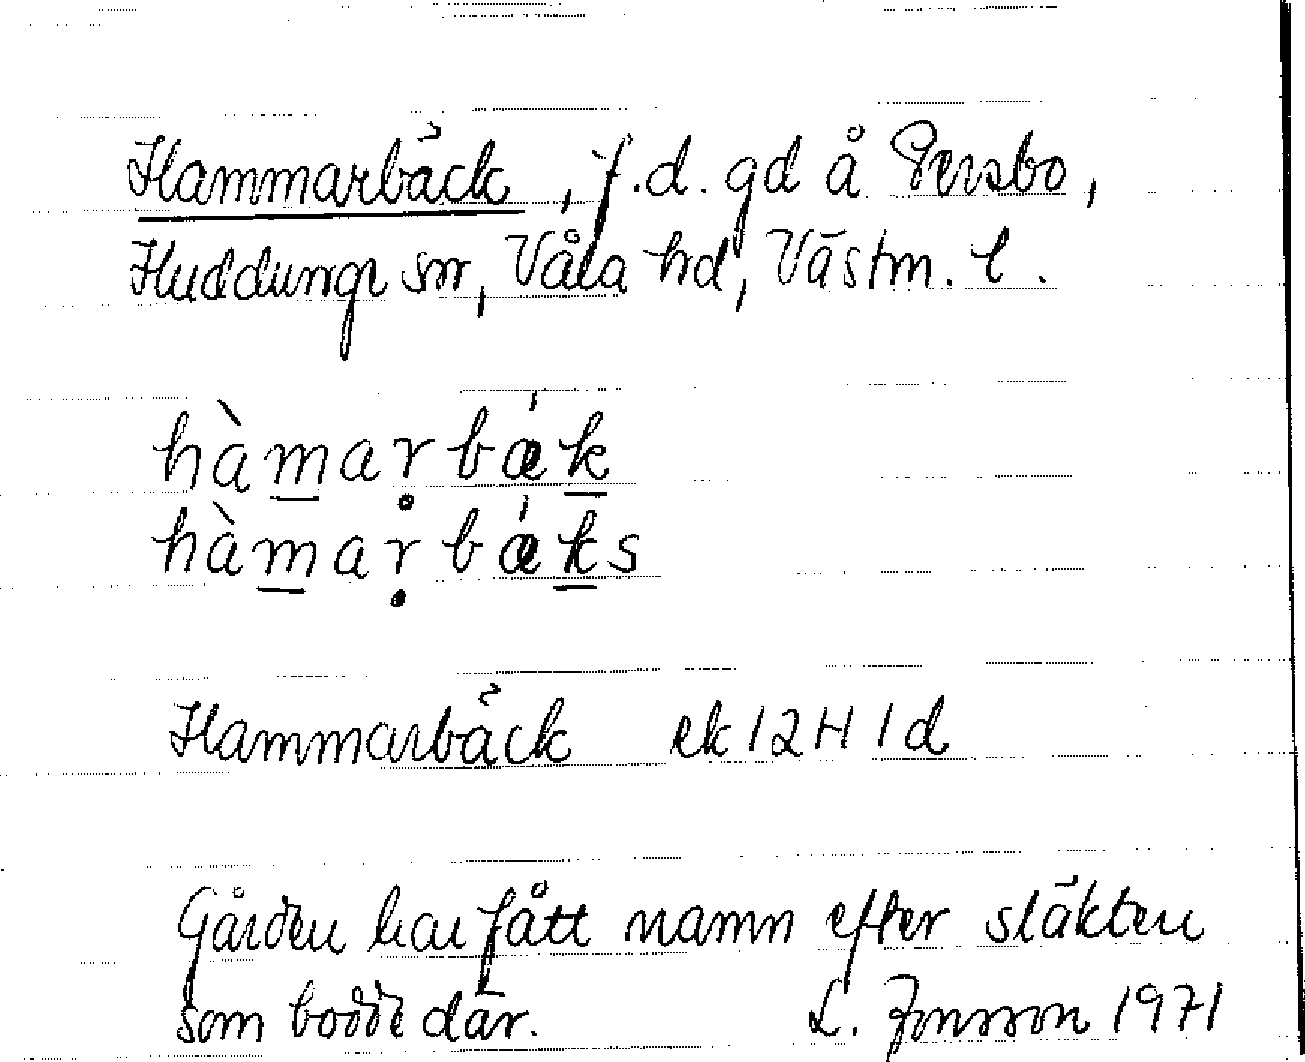 Hammarbäck, f.d. gd å Persbo,
Huddunge sn, Våla hd, Västm. l.
hàmar̥bǽk
hàmar̥bǽks
Hammarbäck ek 12H 1d
Gården har fått namn efter släkten
som bodde där. L. Jonsson 1971